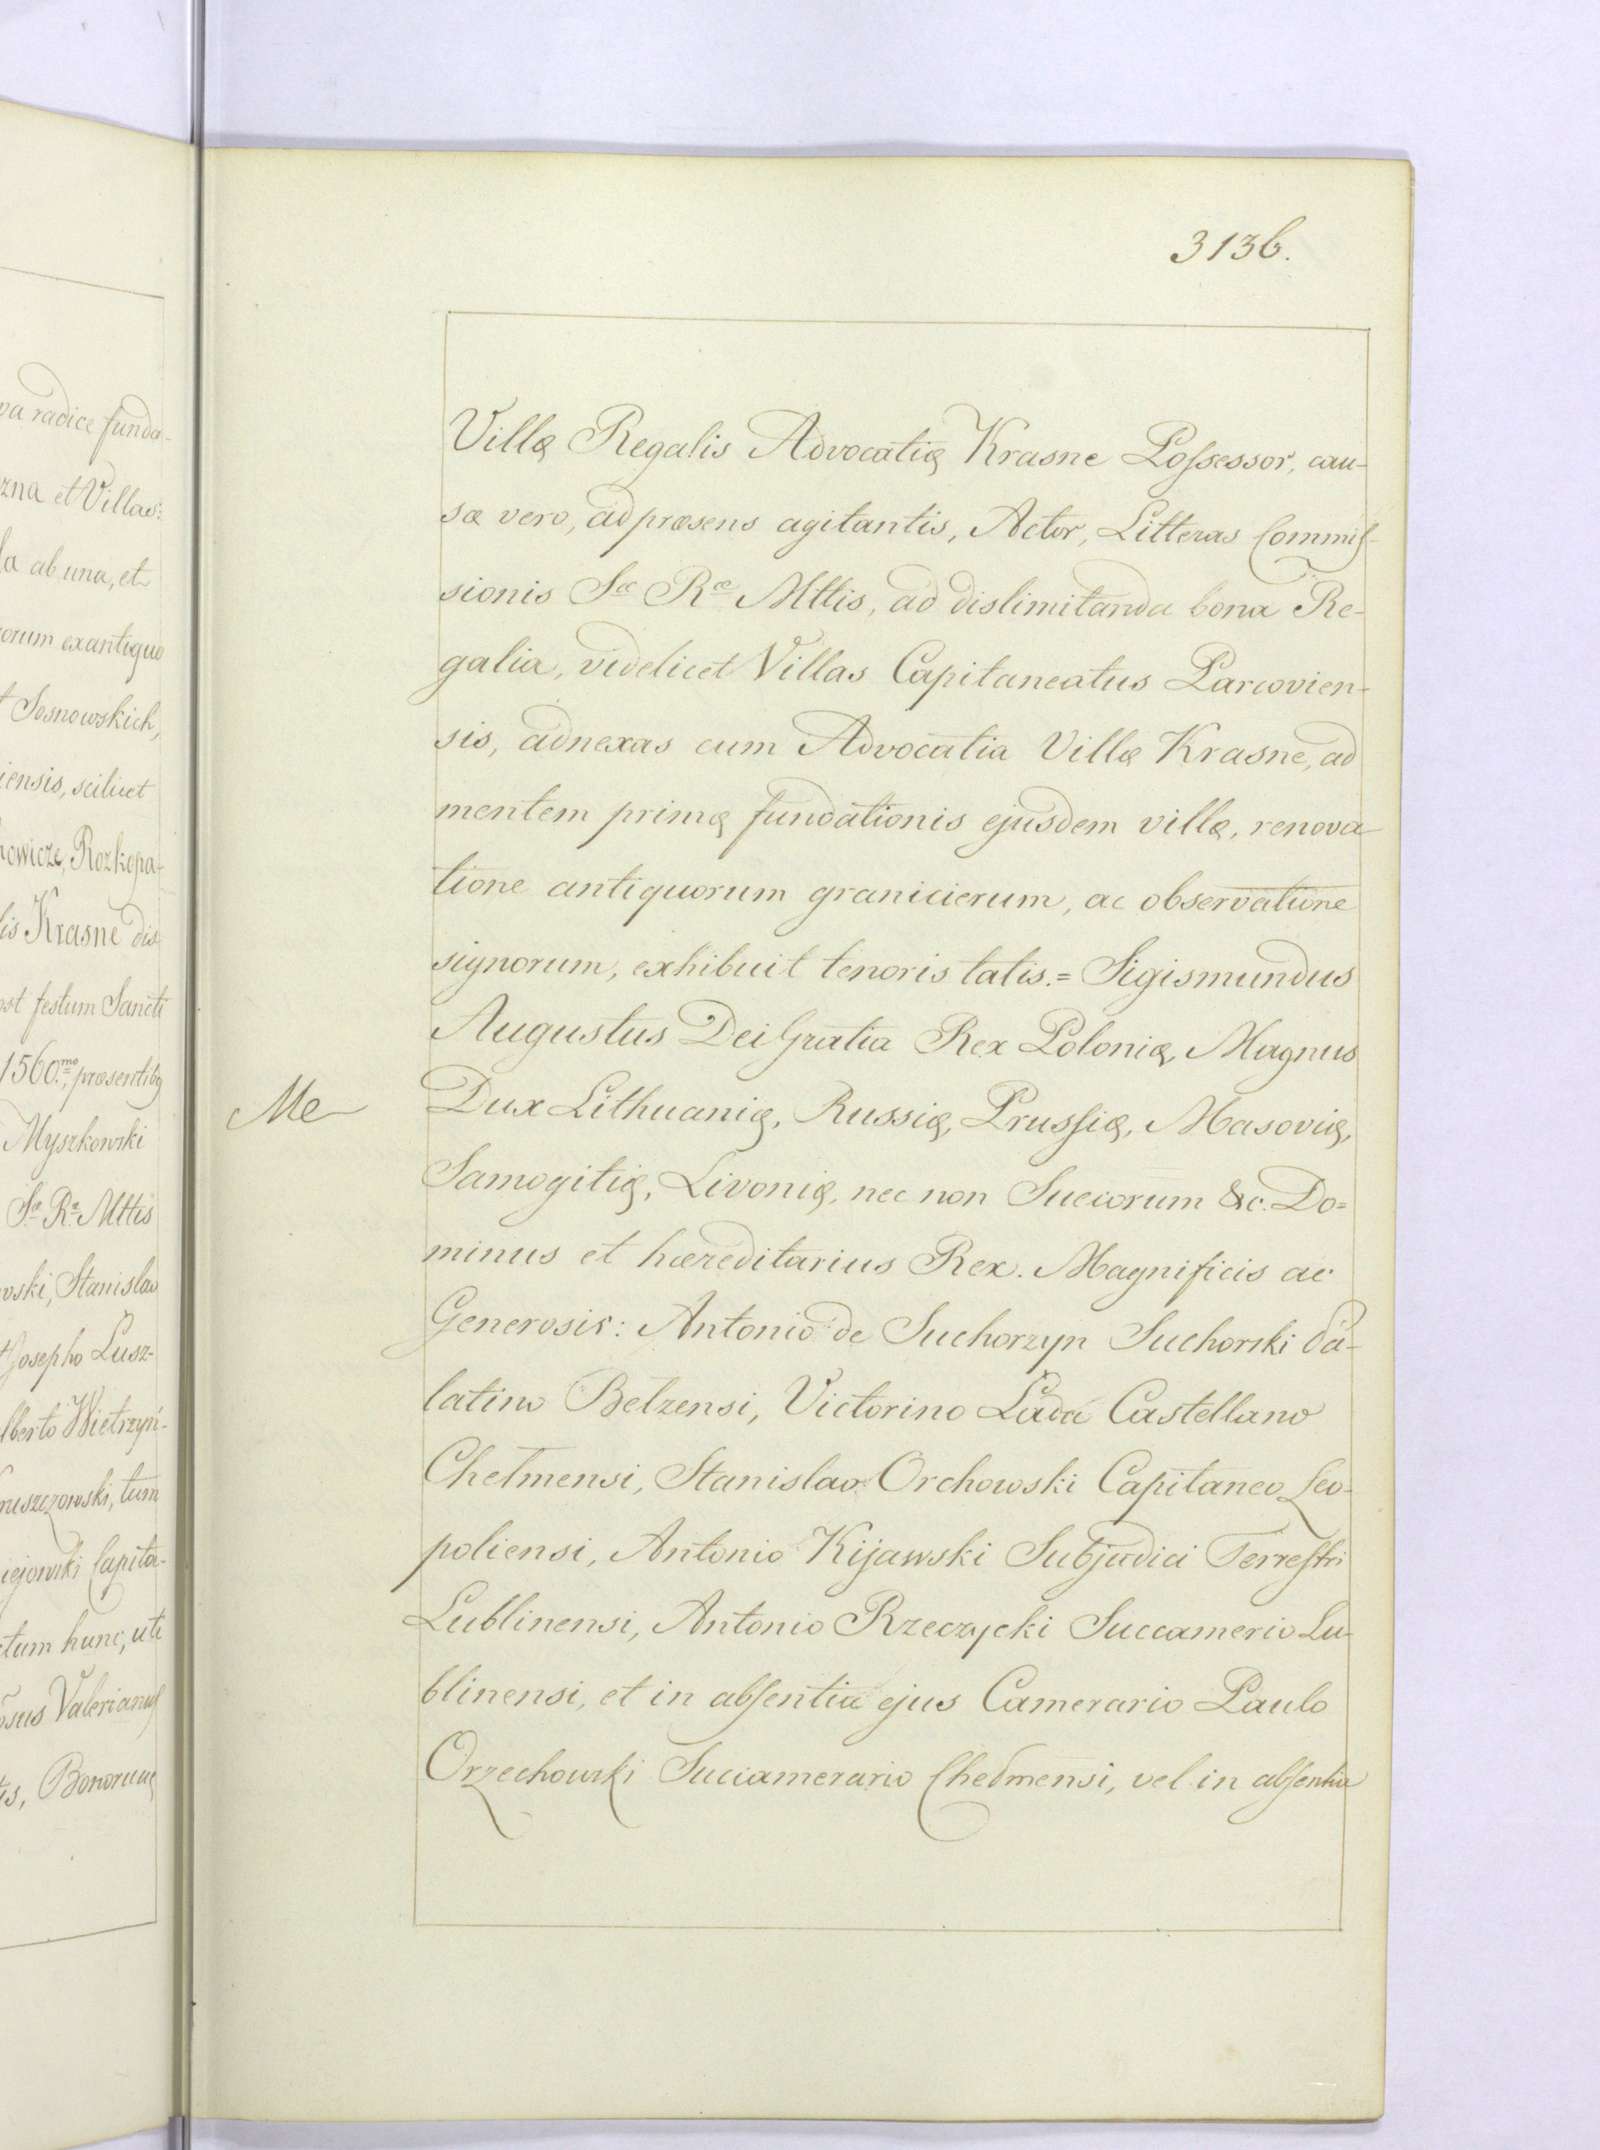 va radice funda-
zna et Villas:
la ab una, et
orum ex antiquo
t Sosnowskich,
iensis, scilicet
howicze, Rozkopa-
lis Krasne dis
ost festum Sancti
1560.mo, præsentibq
Myszkowski
Sæ Ræ Mttis
wski, Stanislao
Josepho Lusz-
lberto Wietrzyń-
ruszczowski, tum
iejowski Capita-
ctum hunc, uti
osus Valerianus
is, Bonorum
3136.
Villę Regalis Advocatię Krasne Possessor, cau-
sæ vero, ad præsens agitantis, Actor, Litteras Commis-
sionis Sæ Ræ Mttis, ad dislimitanda bona Re-
galia, videlicet Villas Capitaneatus Parcovien-
sis, adnexas cum Advocatia Villę Krasne, ad
mentem primę fundationis ejusdem villę, renova
tione antiquorum granicierum, ac observatione
signorum, exhibuit tenoris talis.= Sigismundus
Augustus Dei Gratia Rex Polonię, Magnus
Me
Dux Lithuanię, Russię, Prussię, Masovię,
Samogitię, Livonię, nec non Suecorum &c. Do=
minus et hæreditarius Rex. Magnificis ac
Generosis: Antonio de Suchorzyn Suchorski Pa-
latino Belzensi, Victorino Łada Castellano
Chełmensi, Stanislao Orchowski Capitaneo Leo-
poliensi, Antonio Kijawski Subjudici Terrestri
Lublinensi, Antonio Rzeczycki Succamerio Lu-
blinensi, et in absentia ejus Camerario Paulo
Orzechowski Succamerario Chełmensi, vel in absentia